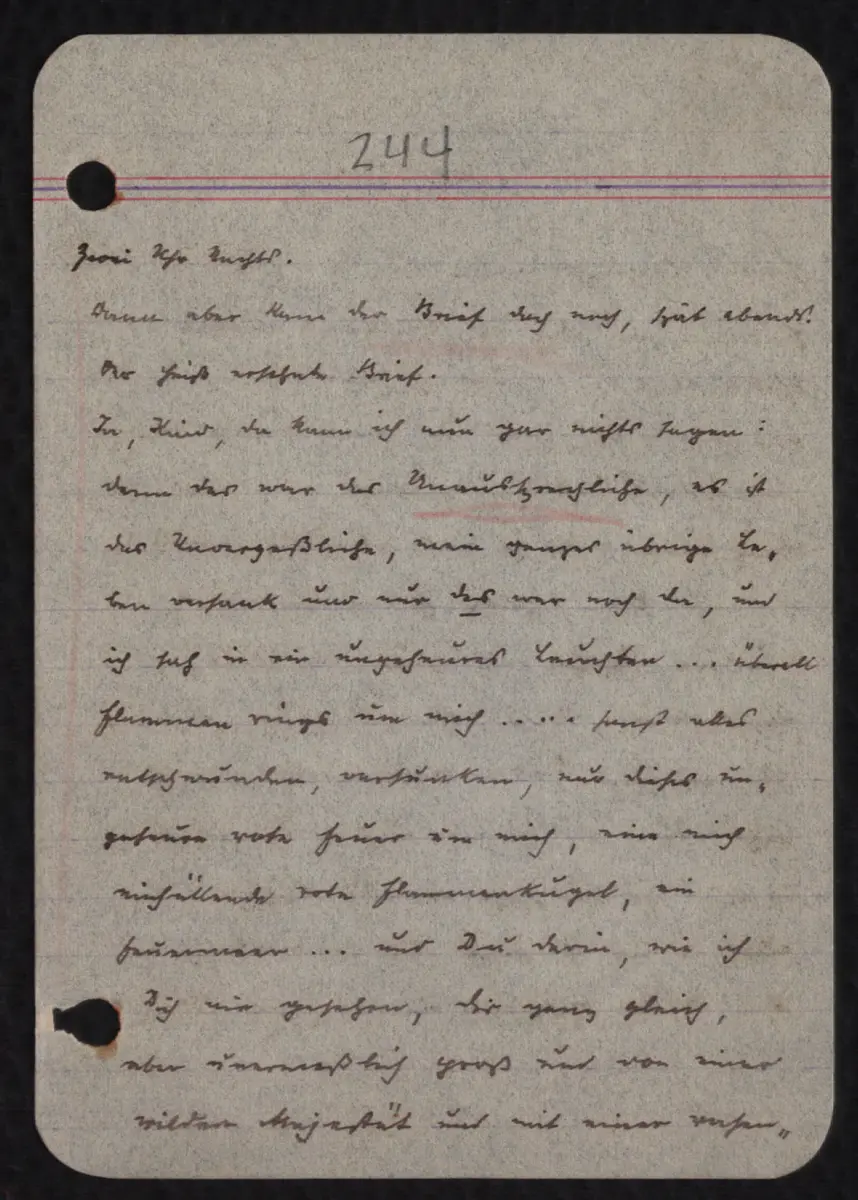 244
Zwei Uhr Nachts.
Dann aber kam der Brief doch noch, spät abends.
Der heiß ersehnte Brief.
Ja, Kind, da kann ich nun gar nichts sagen:
denn das war das Unaussprechliche, es ist
das Unvergeßliche, mein ganzes übrige Le-
ben versank und nur das war noch da, und
ich sah in ein ungeheures Leuchten ... überall
Flammen rings um mich ..... sonst alles
entschwunden, versunken, nur dieses un-
geheure rote Feuer um mich, eine mich
einhüllende rote Flammenkugel, ein
Feuermeer ... und Du darin, wie ich
Dich nie gesehen, Dir ganz gleich,
aber unermeßlich groß und von einer
wilden Majestät und mit einer rasen-